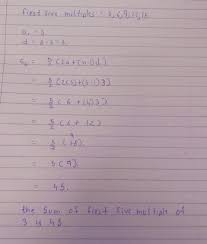 first five multiples = 3, 6, 9, 12, 15
a = 3
d = 6 - 3 = 3
S₅ = n/2 (2a + (n-1)d)
= 5/2 (2(3) + (5-1)3)
= 5/2 (6 + (4)3)
= 5/2 (6 + 12)
= 5/2 (18)
= 5 (9)
= 45.
the sum of first five multiple of
3 is 45